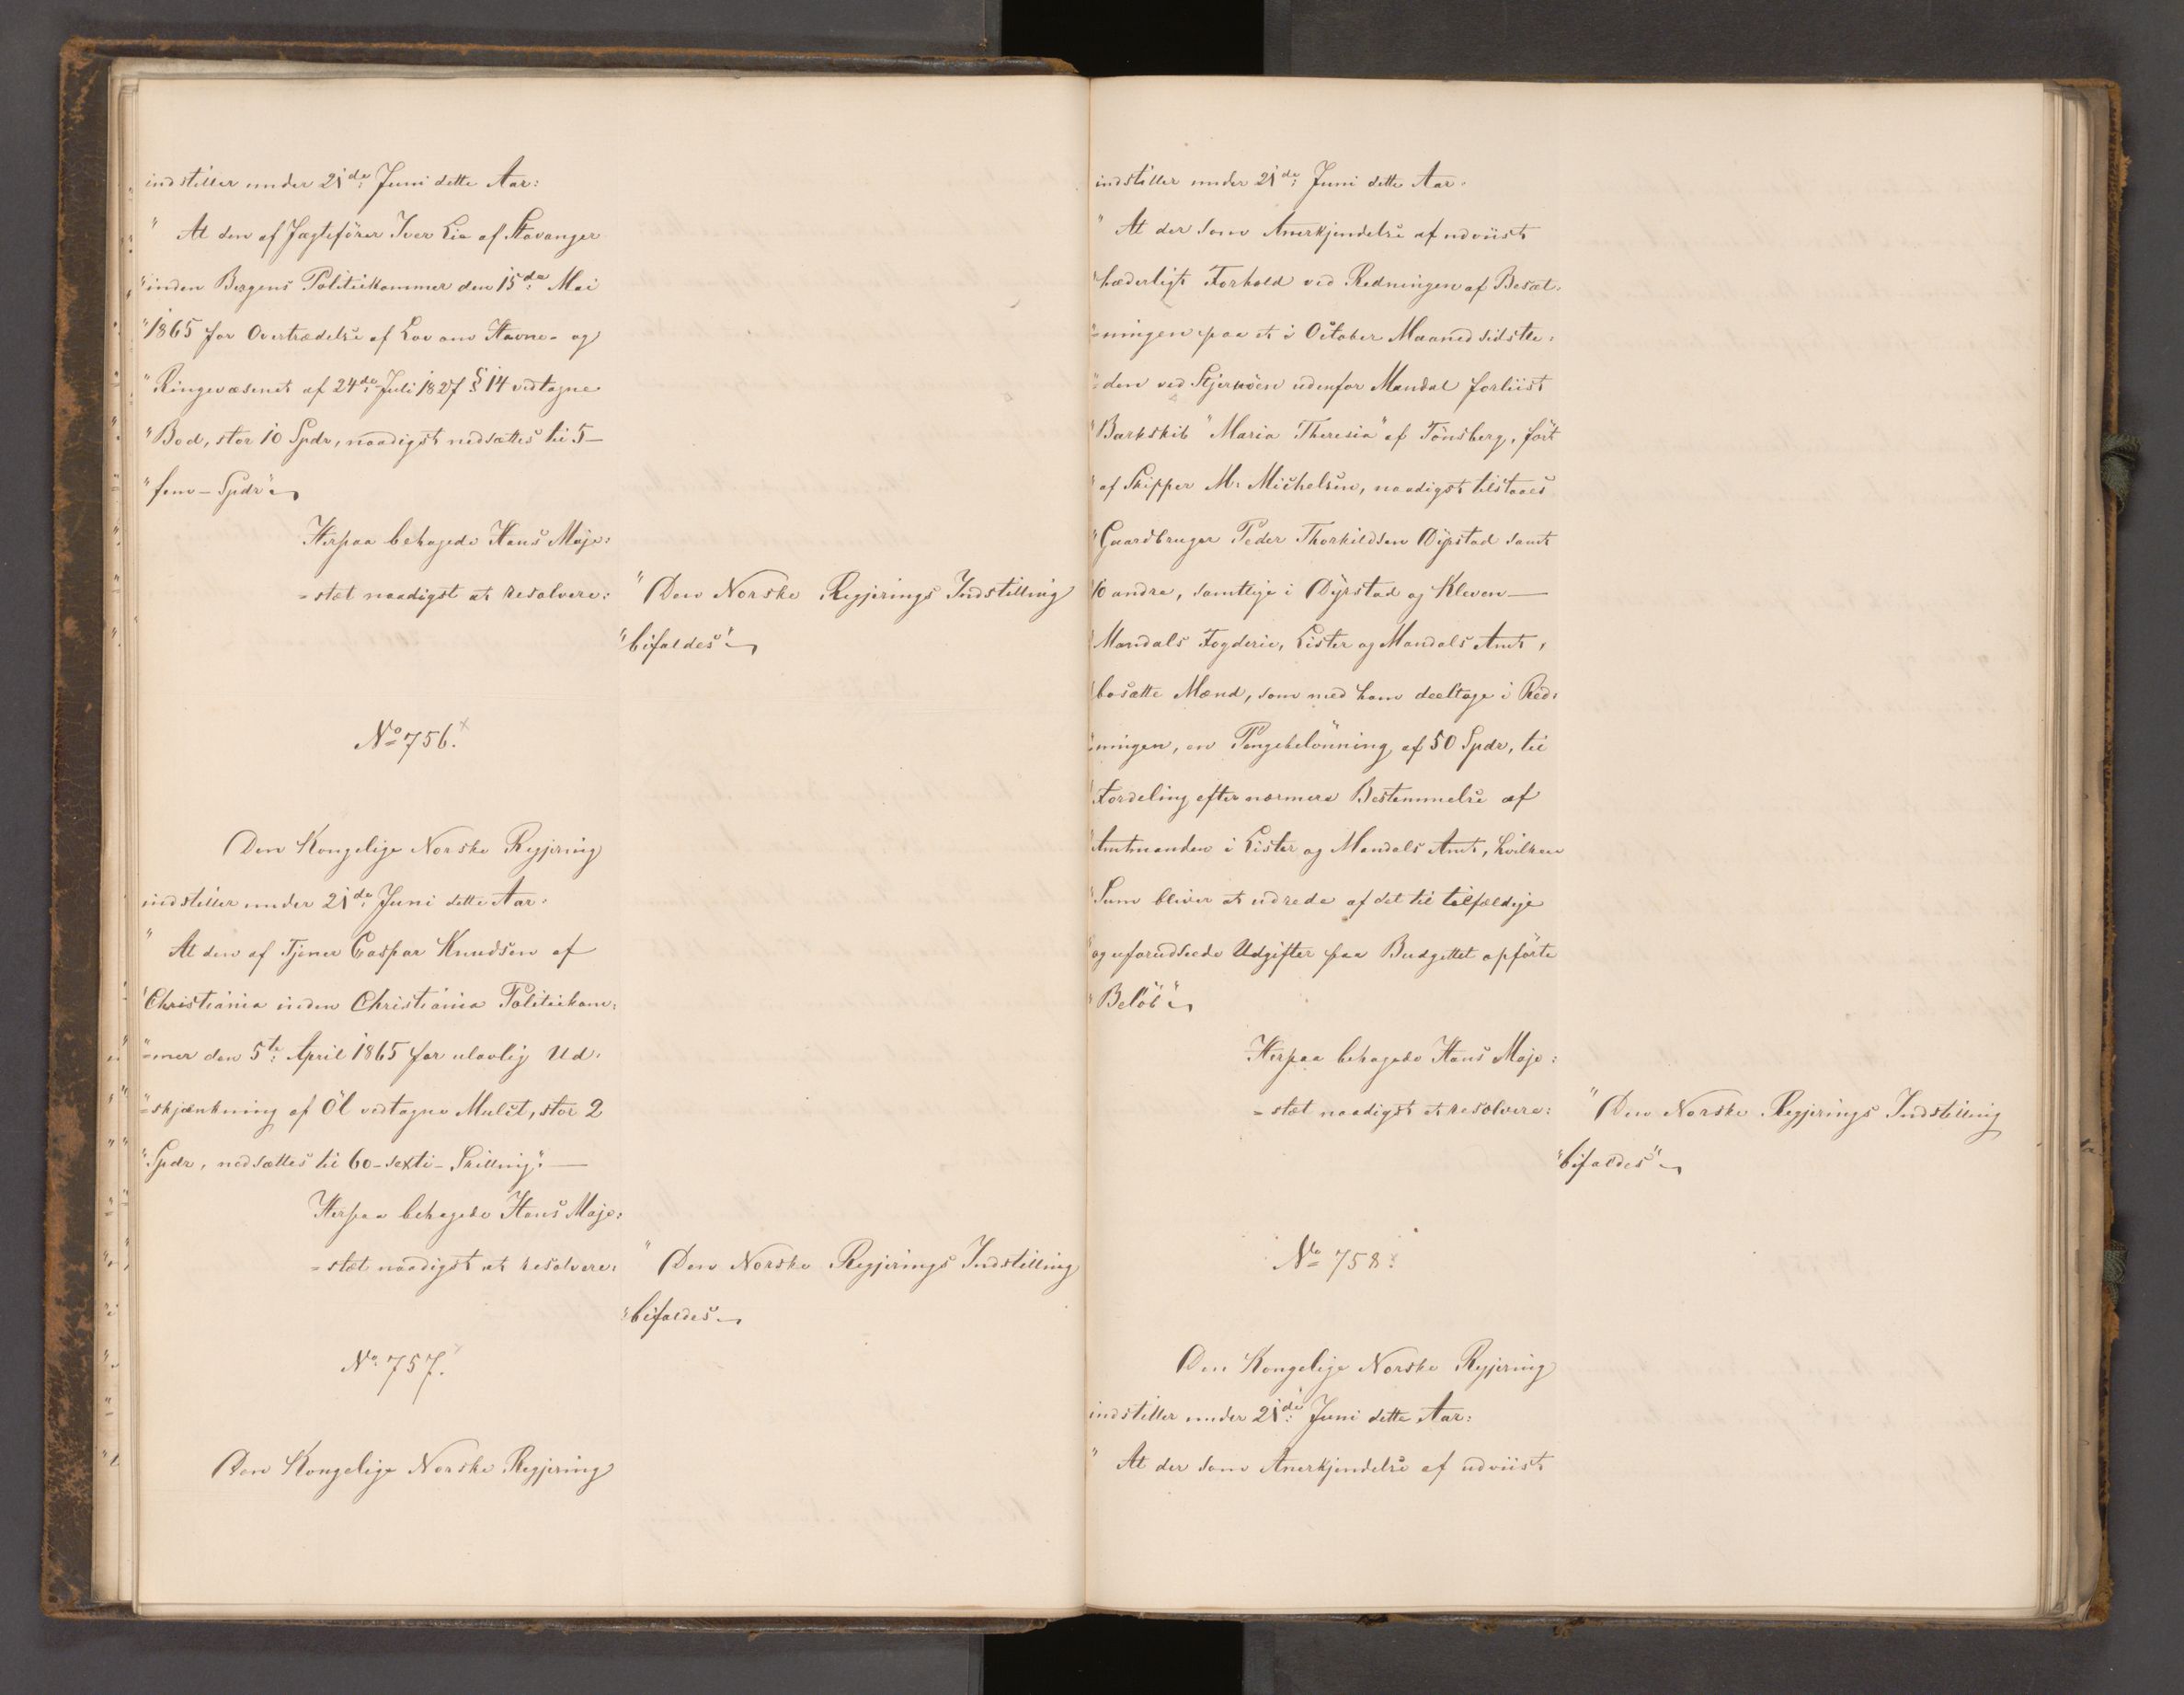 indstiller under 21de: Juni dette Aar:
" At den af Jagtefører Iver Lie af Stavanger
"inden Bergens Politiekammer den 15de: Mai
"1865 for Overtrædelse af Lov om Havne- og
"Ringevæsenet af 24de: Juli 1827 § 14 vedtagne
"Bod, stor 10 Spdr, naadigst nedsættes til 5-
"fem-Spdr"
Herpaa behagede Hans Maje:
=stæt naadigst at resolvere:
"Den Norske Regjerings Indstilling
"bifaldes"
No 756.
Den Kongelige Norske Regjering
indstiller under 21de: Juni dette Aar:
" At den af Tjener Caspar Knudsen af
"Christiania inden Christiania Politiekam:
"=mer den 5te: April 1865 for ulovlig Ud:
"=skjænkning af Öl vedtagne Mulct, stor 2
"Spdr, nedsættes til 60-sexti-Skilling".
Herpaa behagede Hans Maje:
=stæt naadigst at resolvere:
"Den Norske Regjerings Indstilling
"bifaldes
No. 757.
Den Kongelige Norske Regjering
indstiller under 21de: Juni dette Aar:
" At der som Anerkjendelse af udviist
"hæderligt Forhold ved Redningen af Besæt:
"=ningen paa et i October Maaned sidstle:
"=den ved Stjernöen udenfor Mandal forliist
"Barkskib "Maria Theresia" af Tönsberg, fört
"af Skipper M. Michelsen, naadigst tilstaaes
"Gaardbruger Peder Thorkildsen Dyrstad samt
"10 andre, samtlige i Dyrstad og Kleven
"Mandals Fogderie, Lister og Mandals Amt,
"bosatte Mænd, som med ham deeltoge i Red:
"=ningen, en Pengebelönning af 50 Spdr, til
"Fordeling efter nærmere Bestemmelse af
"Amtmanden i Lister og Mandals Amt, hvilken
"Sum bliver at udrede af det til tilfældige
"og uforudseede Udgifter paa Budgettet opförte
"Belöb"
Herpaa behagede Hans Maje:
=stæt naadigst at resolvere:
"Den Norske Regjerings Indstilling
"bifaldes"
No 758.
Den Kongelige Norske Regjering
indstiller under 21de: Juni dette Aar:
" At der som Anerkjendelse af udviist